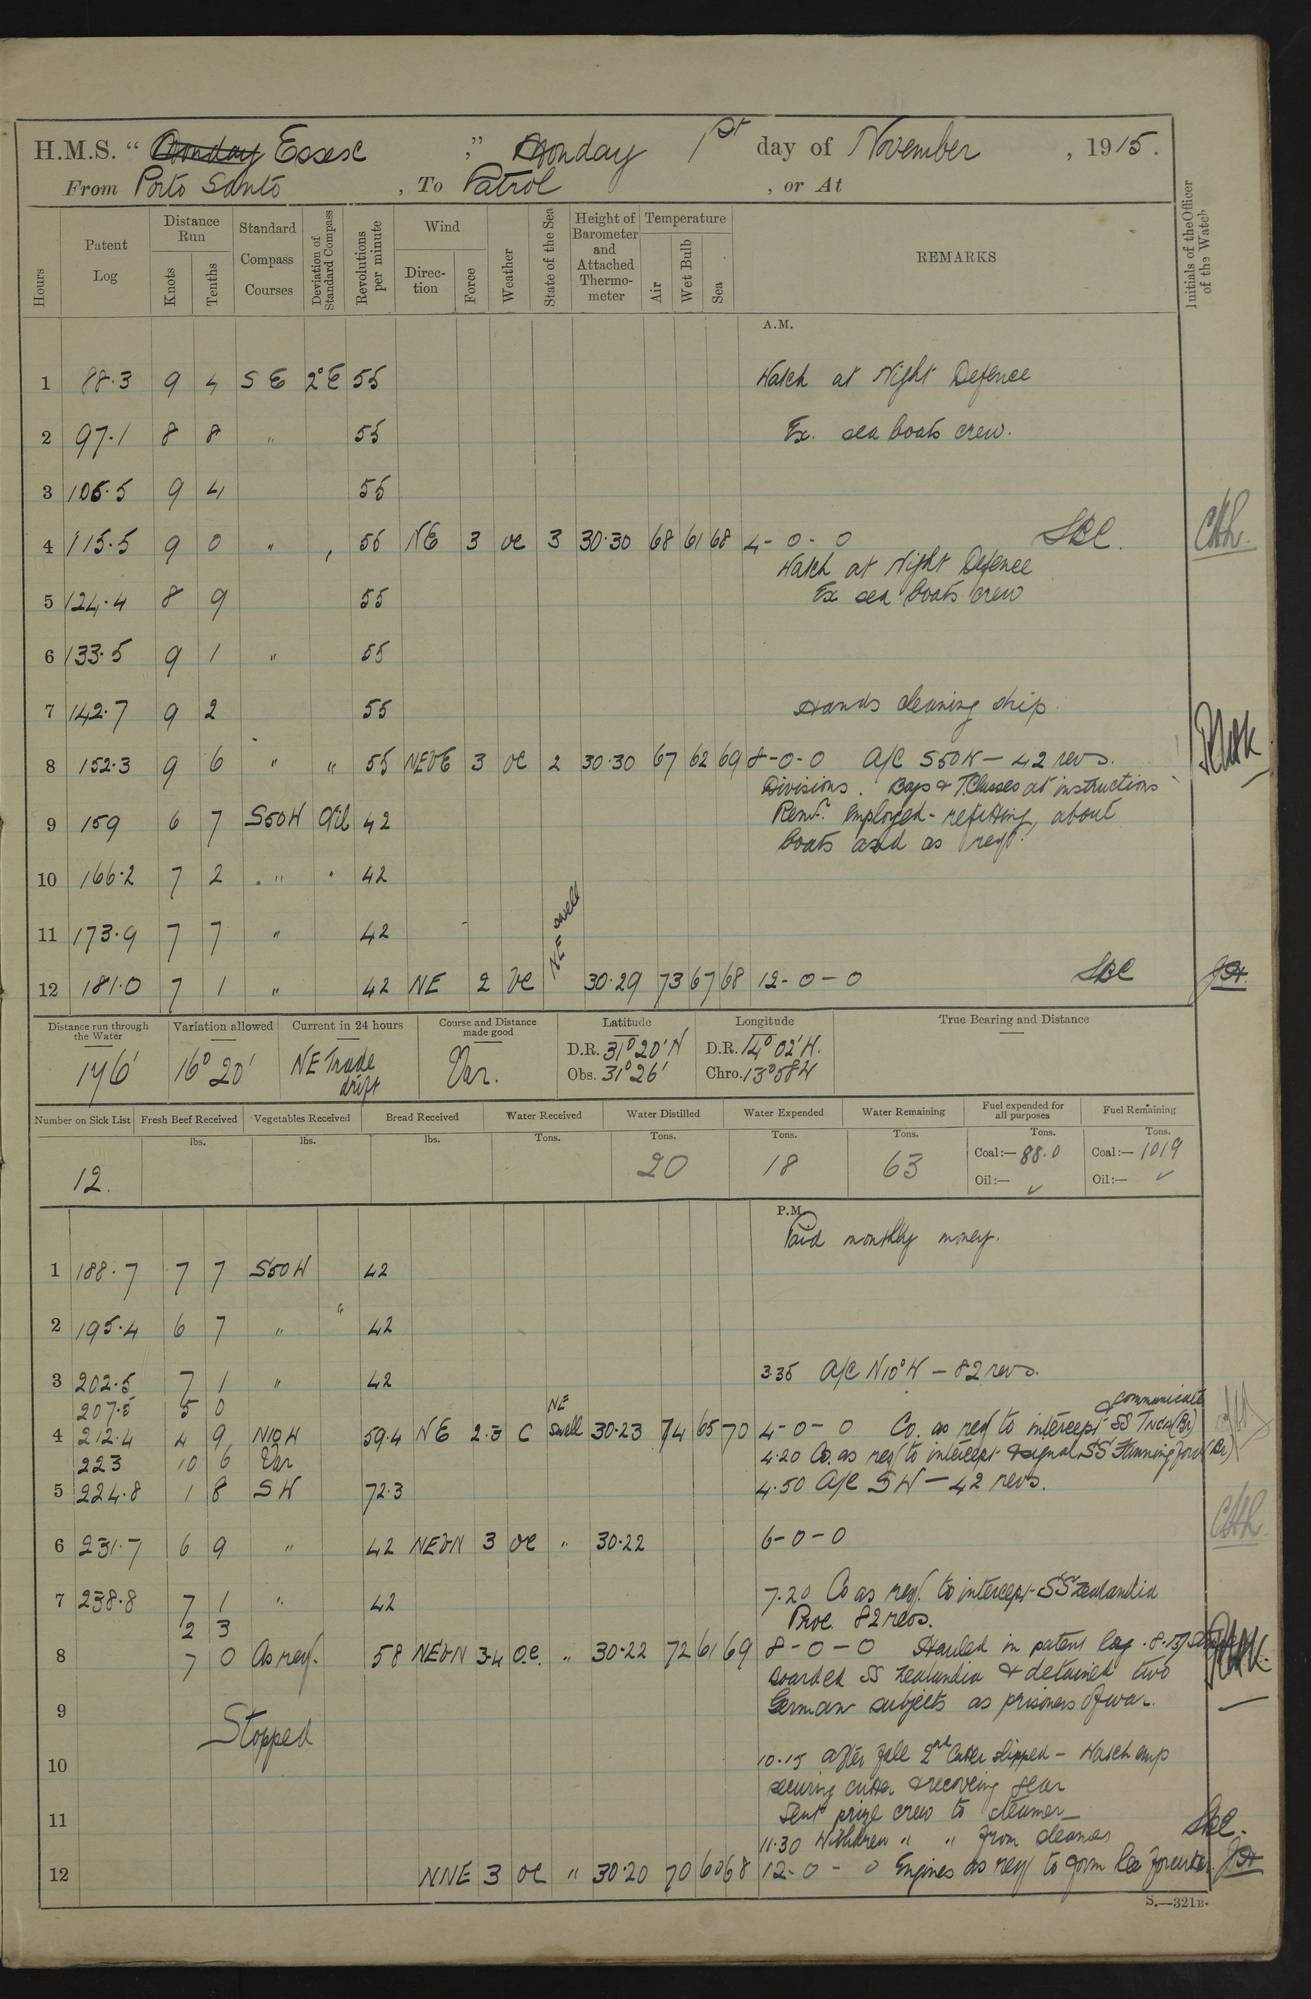 H.M.S. " Monday Essex ," Monday 1st day of November , 1915.
From Porto Santo , To Patrol , or At
Hours
Patent Log
Distance Run
Knots
Tenths
Standard Compass Courses
Deviation of Standard Compass
Revolutions per minute
Wind
Direction
Force
Weather
State of the Sea
Height of Barometer and Attached Thermometer
Temperature
Air
Wet Bulb
Sea
REMARKS
Initials of the Officer of the Watch
A.M.
1 88.3 9 4 S E 2°E 55 Watch at Night Defence
2 97.1 8 8 " 55 Ex. sea boats crew.
3 106.5 9 4 55
4 115.5 9 0 " , 55 NE 3 oc 3 30.30 68 61 68 4-0-0
Watch at Night Defence
5 124.4 8 9 55 Ex sea boats crew
6 133.5 9 1 " 55
7 142.7 9 2 55 Hands cleaning ship
8 152.3 9 6 " " 55 NEbE 3 oc 2 30.30 67 62 69 8-0-0 A/C S50W - 42 revs.
Divisions. Boys & T. Classes at instructions
9 159 6 7 S50W Nil 42 Remr. employed - refitting, about
boats and as reqd.
10 166.2 7 2 " 42
11 173.9 7 7 " 42
NE swell
12 181.0 7 1 " 42 NE 2 oc 30.29 73 67 68 12-0-0
Distance run through the Water
Variation allowed
Current in 24 hours
Course and Distance made good
Latitude
Longitude
True Bearing and Distance
176' 16° 20' NE Trade drift Var. D.R. 31° 20' N D.R. 14° 02' W.
Obs. 31° 26' Chro. 13° 58 W
Number on Sick List
Fresh Beef Received
Vegetables Received
Bread Received
Water Received
Water Distilled
Water Expended
Water Remaining
Fuel expended for all purposes
Fuel Remaining
lbs. lbs. lbs. Tons. Tons. Tons. Tons. Tons. Tons.
12. 20 18 63 Coal:— 88.0 Coal:— 1019
Oil:— ✓ Oil:— ✓
P.M.
Paid monthly money.
1 188.7 7 7 S50W 42
2 195.4 6 7 " " 42
3 202.5 7 1 " 42 3.35 A/C N10°W - 82 revs.
207.5 5 0 NE communicate
4 212.4 4 9 N10W 59.4 NE 2.3 C swell 30.23 74 65 70 4-0-0 Co. as reqd to intercept & SS (Br)
223 10 6 Var 4.20 Co. as reqd to intercept & signal SS (Br)
5 224.8 1 8 SW 72.3 4.50 A/C SW - 42 revs.
6 231.7 6 9 " 42 NEbN 3 oc " 30.22 6-0-0
7 238.8 7 1 " 42 7.20 Co as reqd. to intercept SS Zealandia
2 3 Proc. 82 revs.
8 7 0 As req. 58 NEbN 3.4 o.c. " 30.22 72 61 69 8-0-0 Hauled in patent log. 8.15
Boarded SS Zealandia & detained two
9 German subjects as prisoners of war.
Stopped
10 10.15 After fall 2nd Cutter slipped - Watch emp
securing cutter & recovering gear
11 Sent prize crew to steamer
11.30 Withdrew " " from steamer
12 NNE 3 oc " 30.20 70 60 68 12-0-0 Engines as reqd to form lee for cutter.
S.—321B.